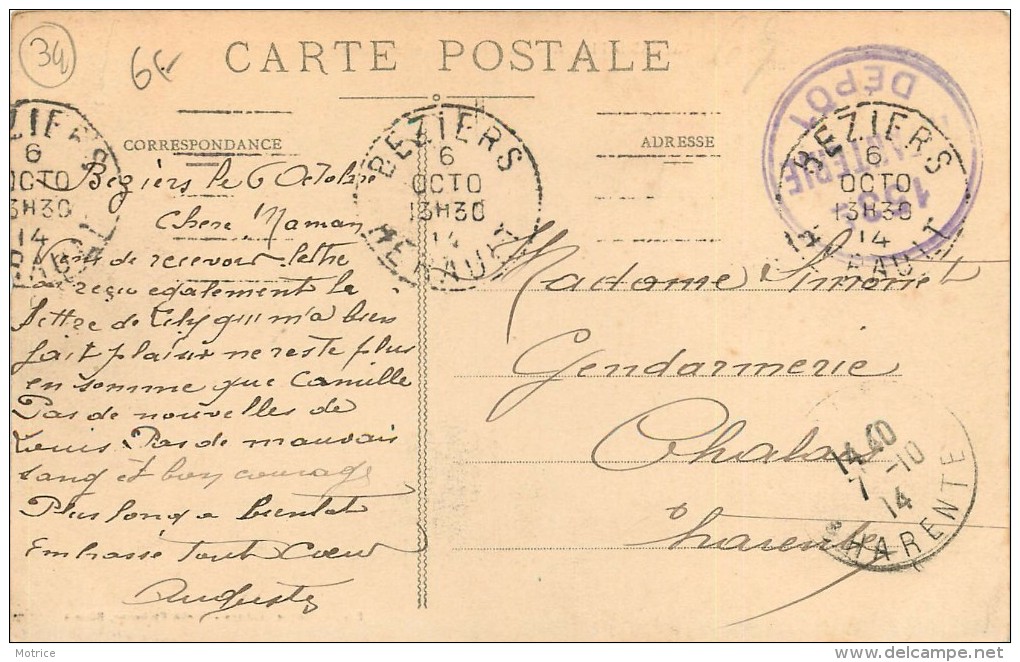 34
6f
CARTE POSTALE
CORRESPONDANCE
ADRESSE
BEZIERS
6
OCTO
13H30
14
HERAULT
BEZIERS
6
OCTO
13H30
14
HERAULT
ZIERS
6
OCTO
3H30
14
DÉPÔT
Beziers le 6 Octobre
Chere Maman
Viens de recevoir lettre
ai reçu egalement la
lettre de Lily qui m'a bien
fait plaisir ne reste plus
en somme que Camille
Pas de nouvelles de
Louis Pas de mauvais
sang et bon courage
Plus long a bientot
Embrasse tout Coeur
Auguste
Madame Simonet
Gendarmerie
Chalais
Charente
14.40
7 -10
14
CHARENTE
Motrice
delcampe.net